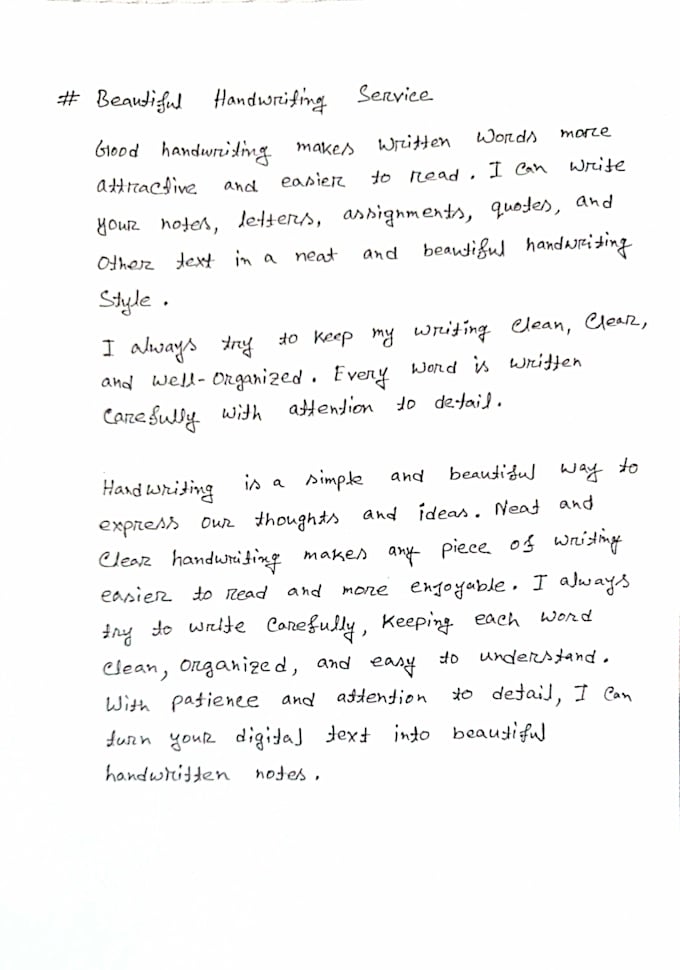 # Beautiful Handwriting Service
Good handwriting makes written words more
attractive and easier to read. I can write
your notes, letters, assignments, quotes, and
other text in a neat and beautiful handwriting
Style.
I always try to keep my writing clean, clear,
and well-organized. Every word is written
carefully with attention to detail.
Handwriting is a simple and beautiful way to
express our thoughts and ideas. Neat and
clear handwriting makes any piece of writing
easier to read and more enjoyable. I always
try to write carefully, keeping each word
clean, organized, and easy to understand.
With patience and attention to detail, I can
turn your digital text into beautiful
handwritten notes.